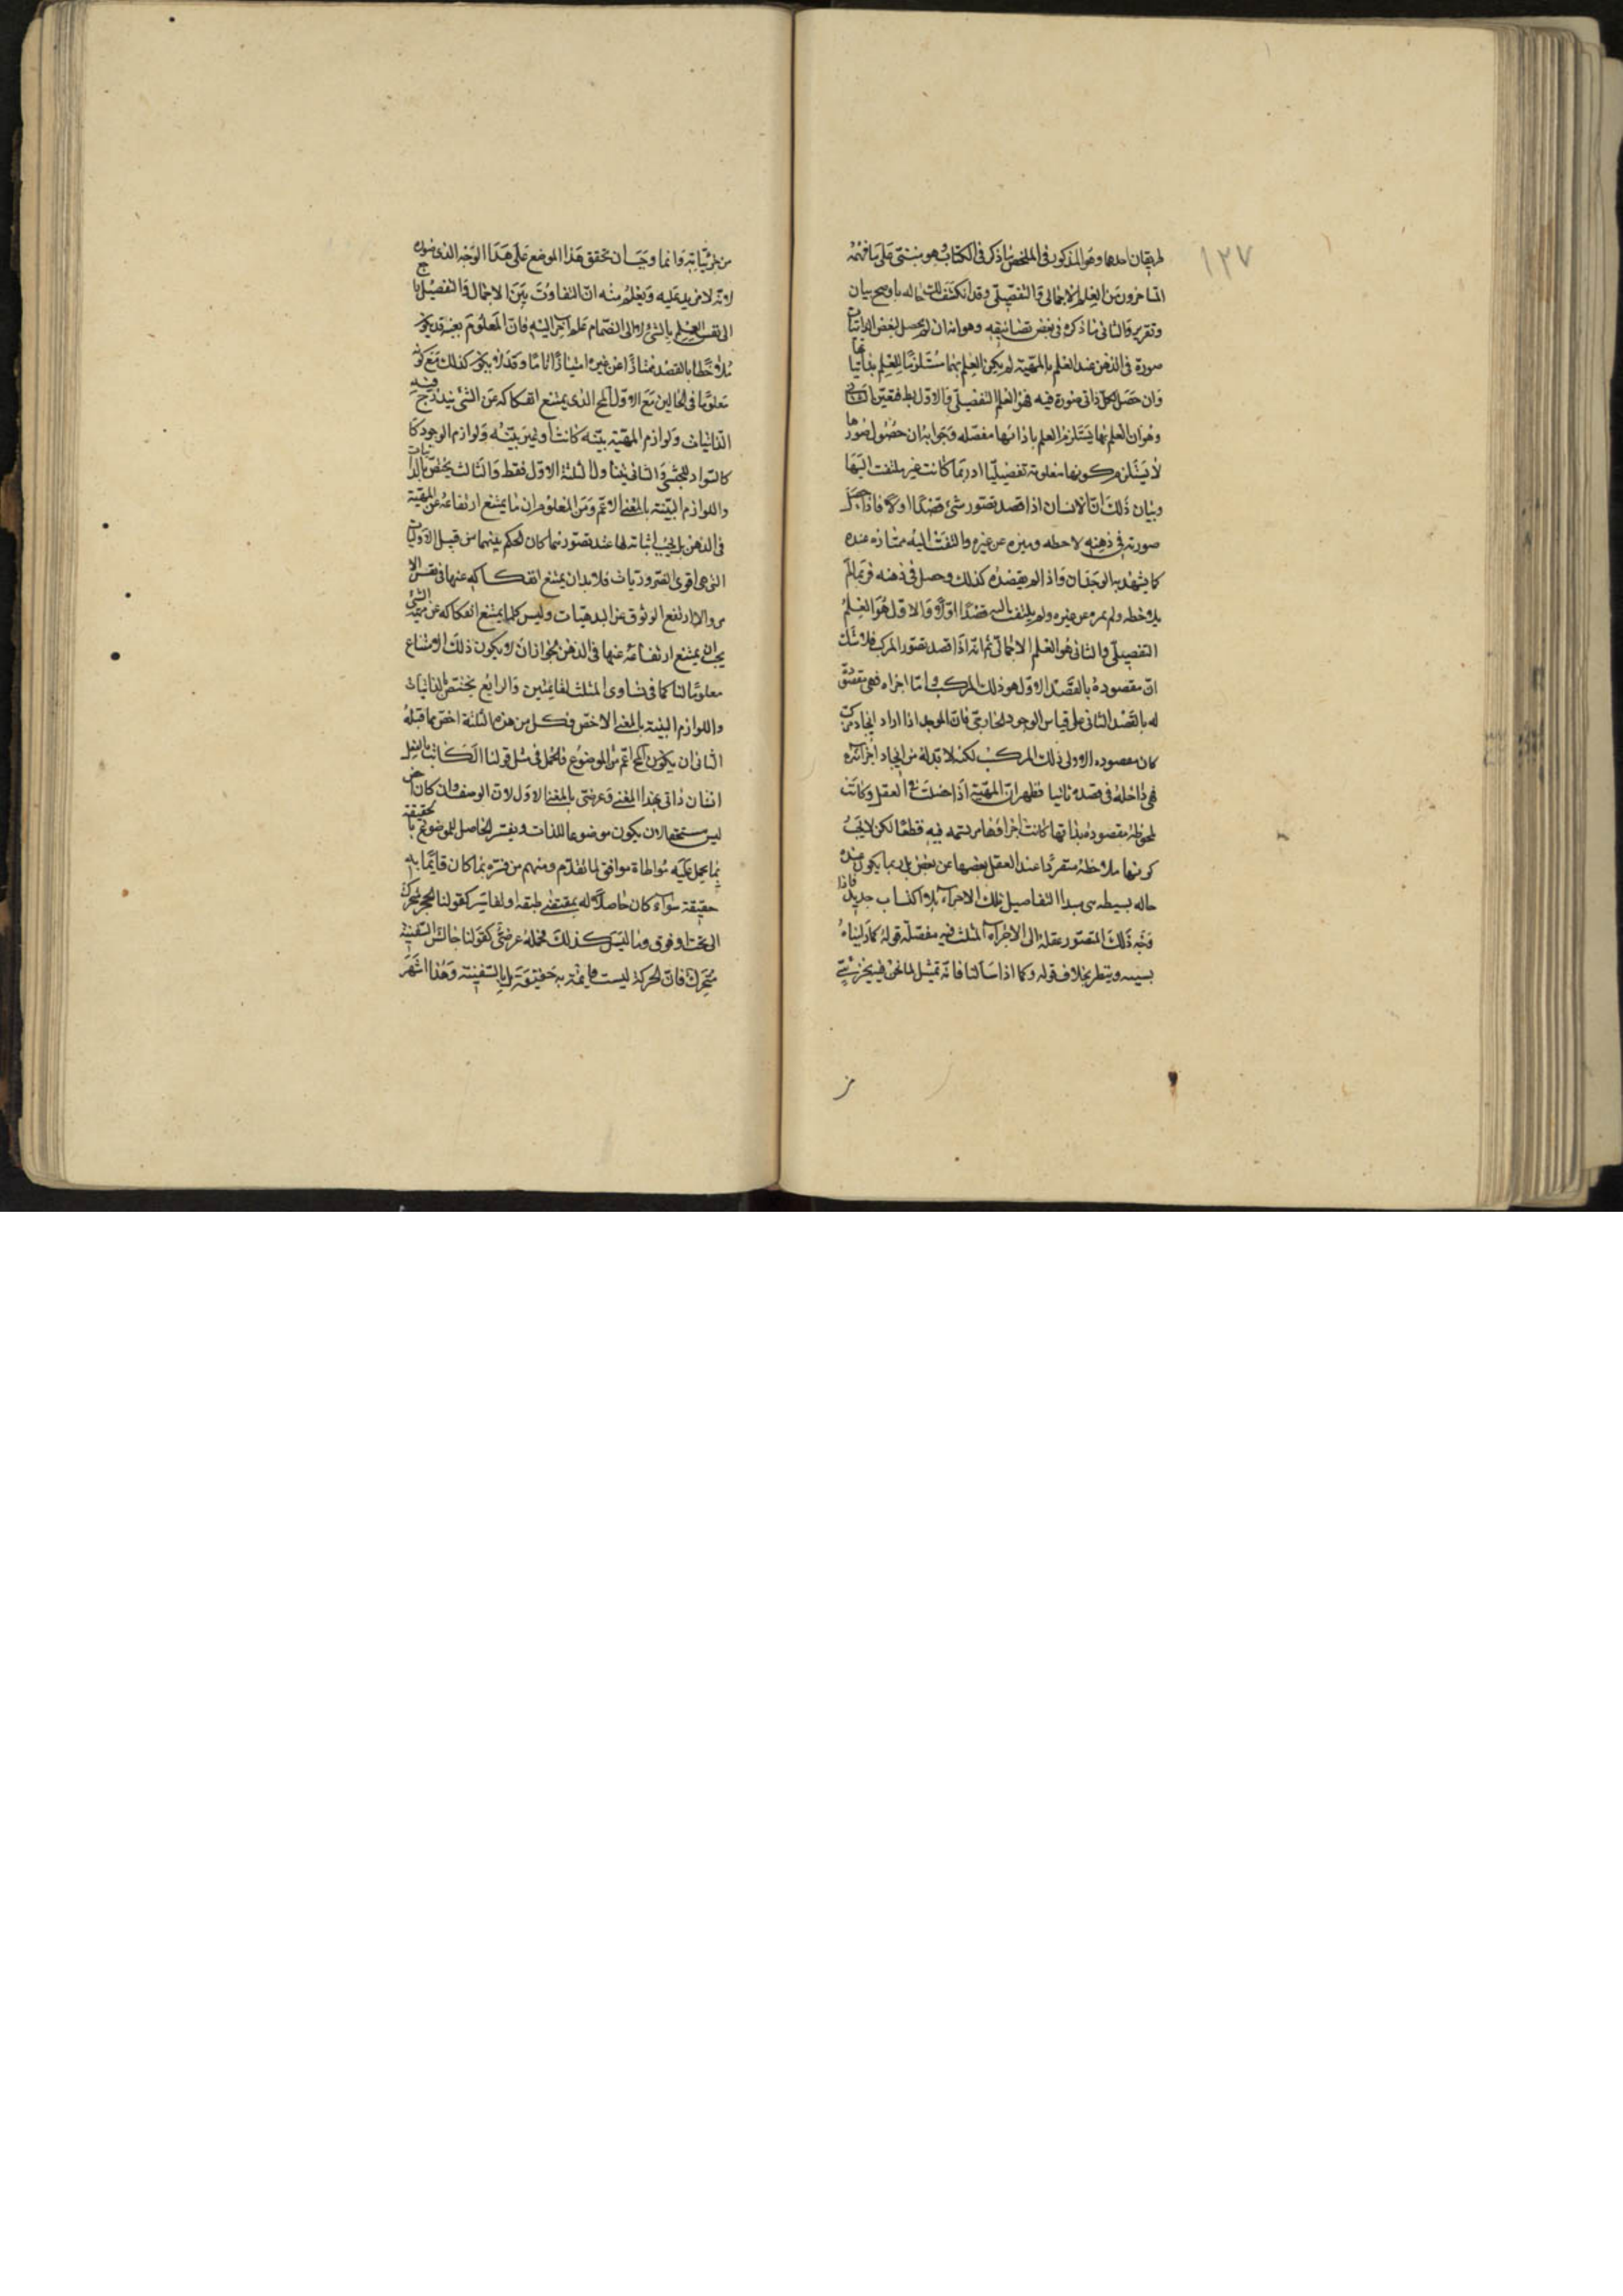 ١٢٧
طريقان احدهما وهو المذكور فى الملخص ما ذكر فى الكتاب وهو مبتنى على ما فهمه
المتاخرون من العلم الاجمالى والتفصيلى وقد انكشف لك حاله باوضح بيان
وتقرير والثانى ما ذكره فى بعض تصانيفه وهو انه ان لم يحصل لبعض الذاتيات
صورة فى الذهن عند العلم بالمهية لم يكن العلم بها مستلزما للعلم بذاتياتها
وان حصل لكل ذاتى صورة فيه فهو العلم التفصيلى والاول بط فتعين
وهو ان العلم بها يستلزم العلم باذاتها مفصله وجوابه ان حصول صورها
لا يستلزم كونها معلومة تفصيليا اذ ربما كانت غير ملتفت اليها
وبيان ذلك ان الانسان اذا قصد تصور شئ قصدا اولا فاذا حصل
صورته فى ذهنه لاحظه وميزه عن غيره والتفت اليه ممتازه عنده
كما يشهد به الوجدان واذا لم يقصده كذلك وحصل فى ذهنه فربما لم
يلاحظه ولم يميزه عن غيره ولم يلتفت اليه قصدا اولا والاول هو العلم
التفصيلى والثانى هو العلم الاجمالى ثم انه اذا قصد تصور المركب فلا شك
ان مقصوده بالقصد الاول هو ذلك المركب واما اجزاه فهى مقصودة
له بالقصد الثانى على قياس الوجود الخارجى فان الموجد اذا اراد ايجاد مركب
كان مقصوده الاولى ذلك المركب لكنه لا بد له من ايجاد اجزائه
فهى داخلة فى قصده ثانيا فظهر ان المهية اذا حصلت فى العقل وكانت
ملحوظة مقصودة بذاتها كانت اجزاؤها مرتسمة فيه قطعا لكن لا يجب
كونها ملاحظة متفردا عند العقل بعضها عن بعض بل ربما يكون عنده
حاله بسيطه هى مبدا التفاصيل تلك الاجزاء بلا اكتساب جديد فاذا
وجه ذلك المتصور عقله الى الاجزاء تمثلت فيه مفصلة قوله كما دليناه
بسببه وينظر بخلاف قوله وكما اذا سألنا فانه تمثل لما نحن فيه بجزئى
من جزئياته وانما وجب ان تحقق هذا الموضع على هذا الوجه الذى
لانه لا مزيد عليه ويعلم منه ان التفاوت بين الاجمال والتفصيل راجع
الى نفس العلم بالشئ لا الى انضمام علم آخر اليه فان المعلوم بعينه قد يكون
ملاحظا بالقصد ممتازا عن غيره امتيازا تاما وقد لا يكون كذلك مع كونه
معلوما فى الحالين مع الاول المح الذى يمتنع انفكاكه عن الشئ يندرج فيه
الذاتيات ولوازم المهية بينه كانت او غير بينه ولوازم الوجود كا
كالسواد للحبشى والثانى يتناول الثلثة الاول فقط والثالث يختص بالذاتيات
واللوازم البينة بالمعنى الاعم ومن المعلوم ان ما يمتنع ارتفاعه عن المهية
فى الذهن بل يجب اثباته لها عند تصورهما كان الحكم بينهما من قبيل الاوليات
التى هى اقوى الضروريات فلا بد ان يمتنع انفكاكه عنها فى نفس الا
مر والا ارتفع الوثوق عن البدهيات وليس كلما يمتنع انفكاكه عن مهية الشئ
يجب ان يمتنع ارتفاعه عنها فى الذهن لجواز ان لا يكون ذلك الامتناع
معلوما لنا كما فى تساوى المثلث لقائمتين والرابع يختص بالذاتيات
واللوازم البينة بالمعنى الاخص فكل من هذه الثلثة اخص مما قبله
الثانى ان يكون المح اعم من الموضوع فالحمل فى مثل قولنا الكاتب بالفعل
انسان ذاتى بهذا المعنى وعرضى بالمعنى الاول لان الوصف وان كان اخص
ليس مستحقا لان يكون موضوعا للذات ويفسر الحاصل للموضوع بالحقيقة
بما يحمل عليه مواطاة موافق لما تقدم ومنهم من فسره بما كان قائما به
حقيقة سواء كان حاصلا له بمقتضى طبقه او لقاسر كقولنا الحجر متحرك
الى تحت او فوق وما ليس كذلك فحمله عرضى كقولنا جالس السفينة
متحرك فان الحركة ليست قايمة به حقيقة بل بالسفينة وهذا اشهر